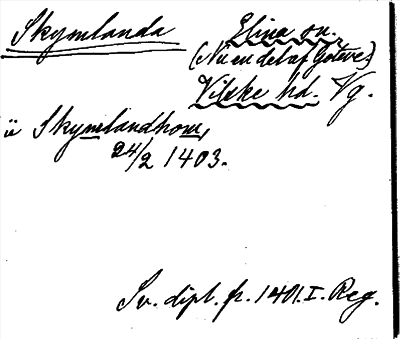 Skymlanda
Elina sn.
(Nu en del af Göteve)
Vilske hd. Vg.
ü Skymlandhom,
24/2 1403.
Sv. dipl. fr. 1401. I. Reg.